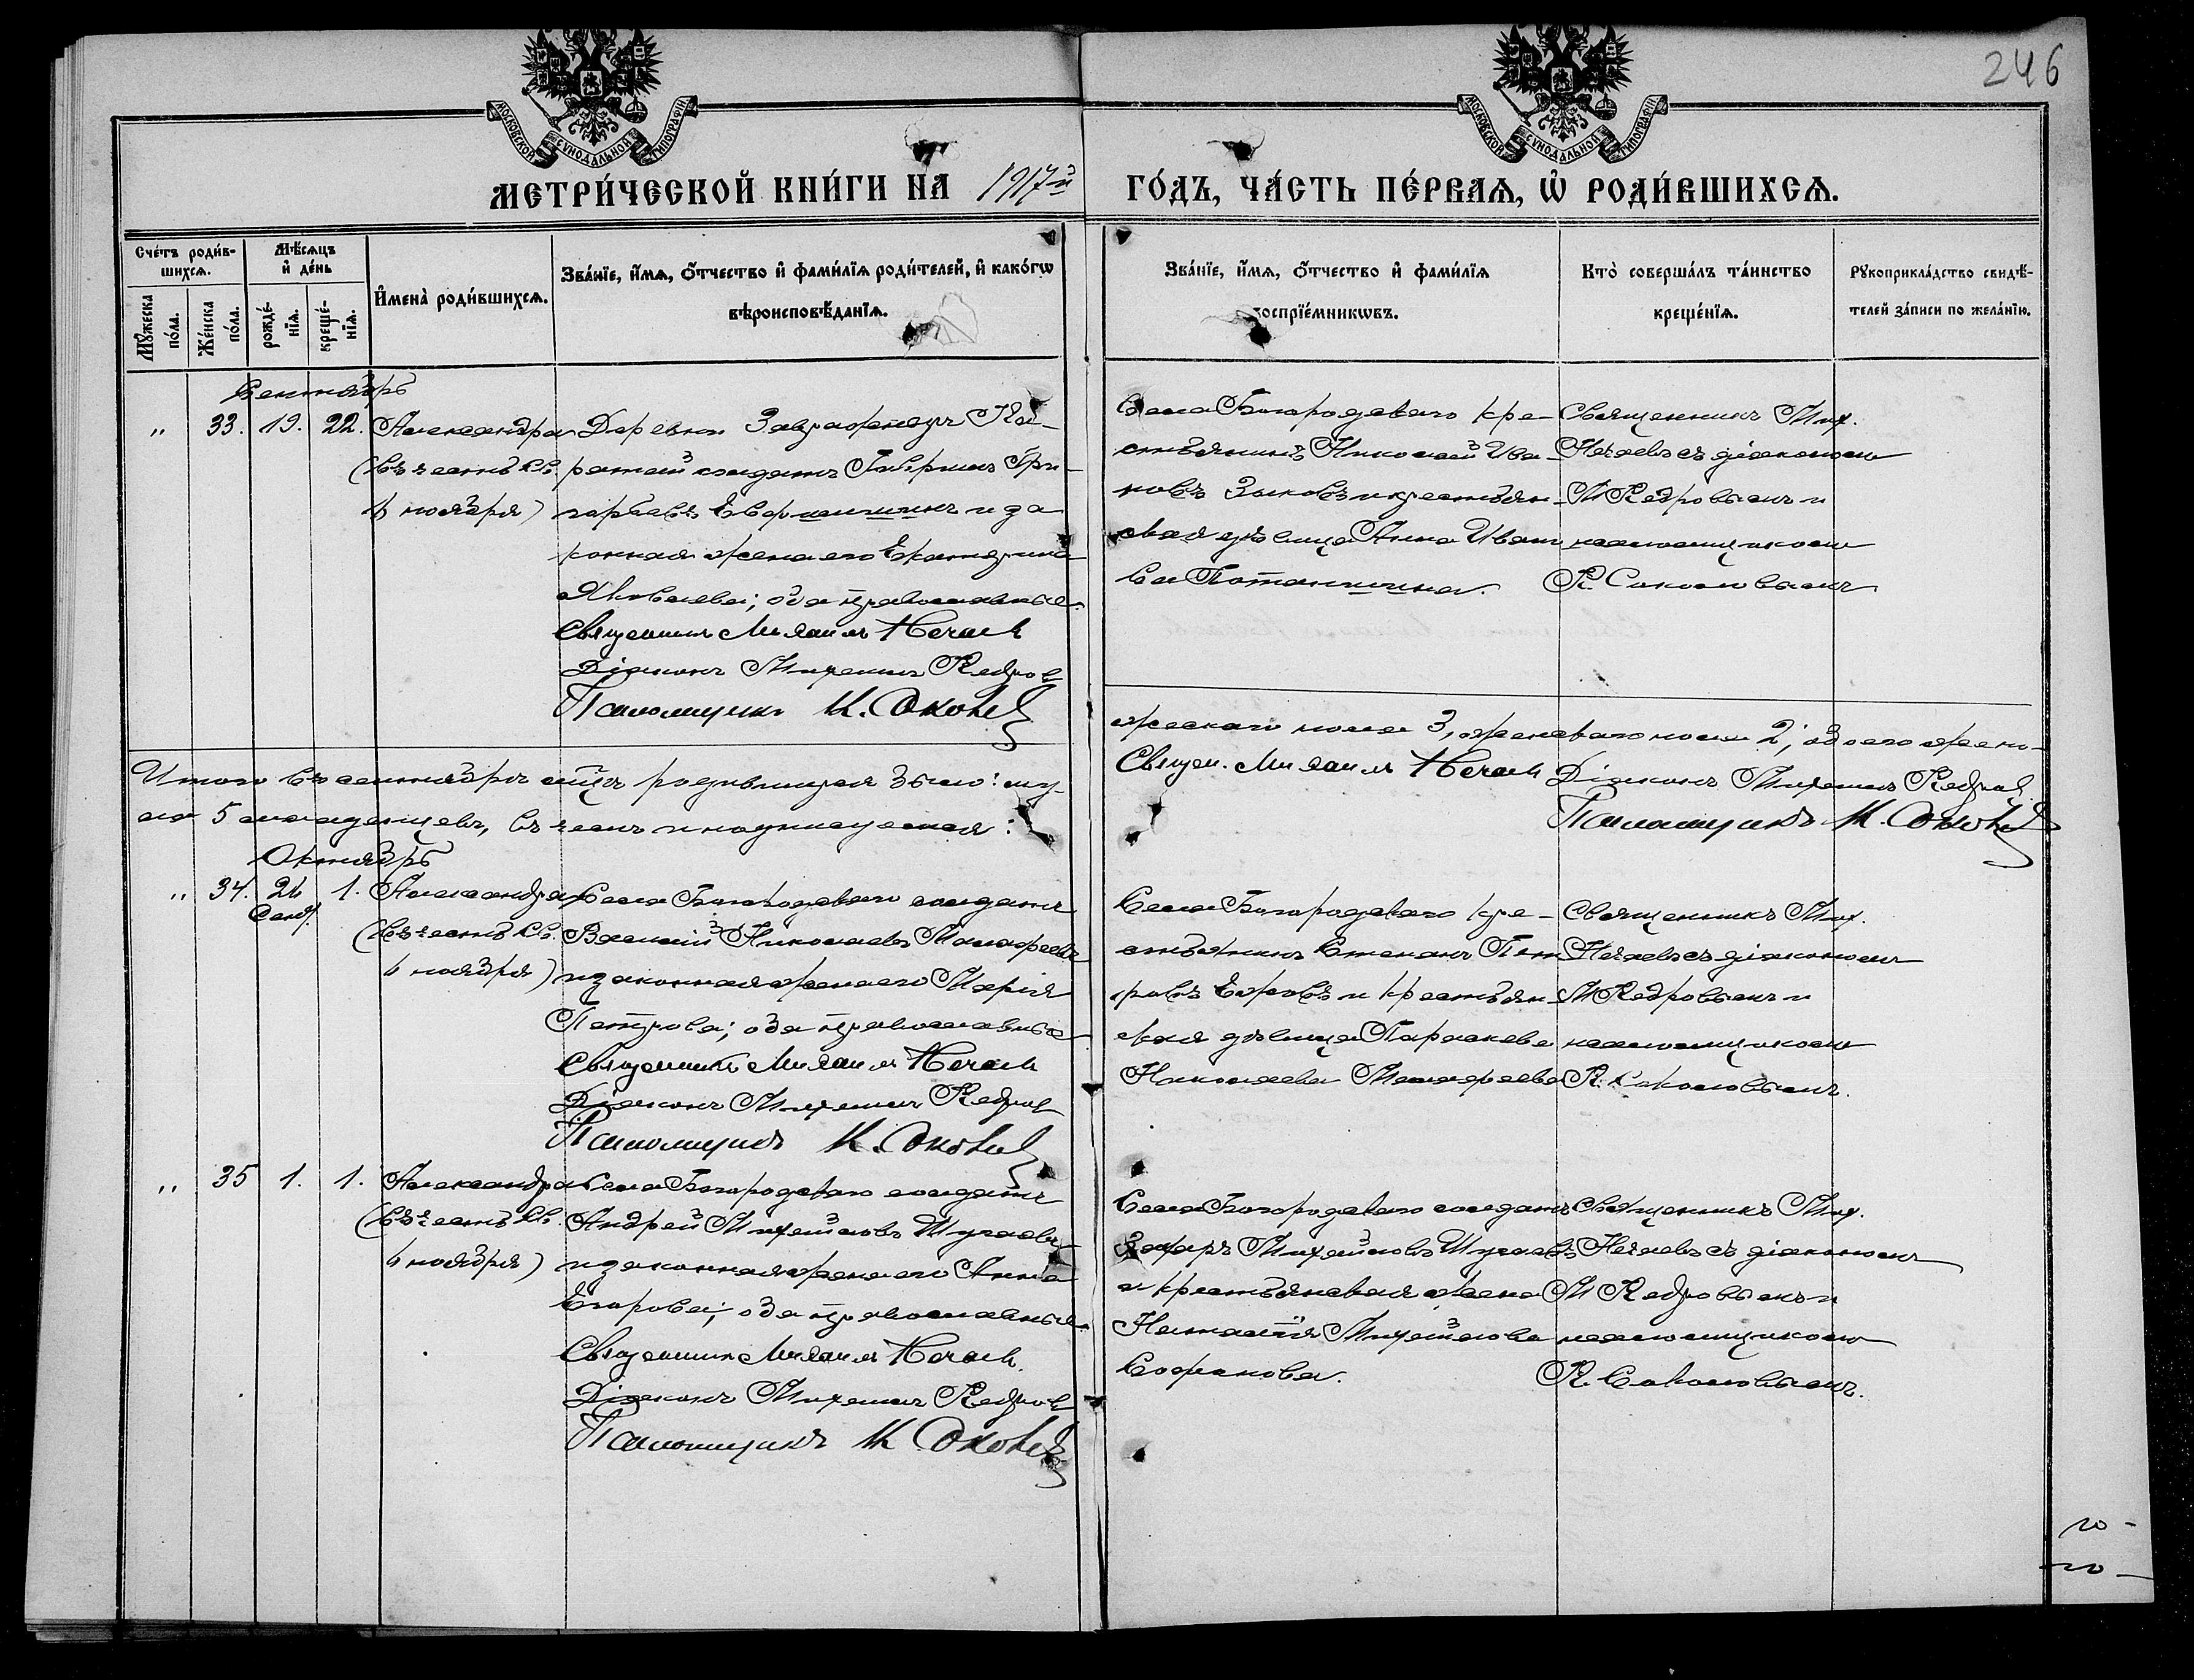 246
МОСКОВСКОЙ СѴНОДАЛЬНОЙ ТИПОГРАФІИ
МОСКОВСКОЙ СѴНОДАЛЬНОЙ ТИПОГРАФІИ
МЕТРИ́ЧЕСКОЙ КНИ́ГИ НА 1917й ГО́ДЪ, ЧА́СТЬ ПЕ́РВАѦ, Ѡ҆ РОДИ́ВШИХСѦ.
Сче́тъ роди́в-
шихсѧ.
Мꙋ́жеска по́ла.
Же́нска по́ла.
Мѣ́сѧцъ и҆ де́нь
рожде́нїѧ.
креще́нїѧ.
И҆мена̀ роди́вшихсѧ.
Зва́нїе, и҆́мѧ, ѻ҆́тчество и҆ фами́лїѧ роди́телей, и҆ како́гѡ
вѣроисповѣ́данїѧ.
Зва́нїе, и҆́мѧ, ѻ҆́тчество и҆ фами́лїѧ
воспрїе́мникѡвъ.
Кто̀ соверша́лъ та́инство
креще́нїѧ.
Рꙋкоприкла́дство свидѣ́-
телей за́писи по жела́нїю.
Сентябрь
„ 33. 19. 22.
Александра
(въ честь св.
ноября)
Деревни
солдатъ Гавріилъ Гри-
горьевъ и за-
конная жена его Екатерина
Яковлева; оба православные.
Священникъ Михаилъ Нечаевъ
Діаконъ Михаилъ Кедровъ
Псаломщикъ К. Соколовъ
Села Богородскаго кре-
стьянинъ Николай Ива-
новъ Зыковъ и крестьян-
ская дѣвица Анна Ивано-
ва Потапшина.
Священникъ Мих.
Нечаевъ съ діакономъ
М. Кедровымъ и
псаломщикомъ
К. Соколовымъ
Итого въ сентябрѣ м-цѣ родившихся было: му-
жескаго пола 3, женскаго пола 2, обоего же по-
ла 5 младенцевъ, въ чемъ и подписуемся:
Свящ. Михаилъ Нечаевъ Діаконъ Михаилъ Кедровъ
Псаломщикъ К. Соколовъ
Октябрь
„ 34. 24 Сент. 1.
Александра
(въ честь св.
ноября)
Села Богородскаго солдатъ
Василій Николаевъ
и законная жена его Марія
Петрова; оба православные
Священникъ Михаилъ Нечаевъ
Діаконъ Михаилъ Кедровъ
Псаломщикъ К. Соколовъ
Села Богородскаго кре-
стьянинъ Степанъ Пет-
ровъ Ежовъ и крестьян-
ская дѣвица Параскева
Николаева
Священникъ Мих.
Нечаевъ съ діакономъ
М. Кедровымъ и
псаломщикомъ
К. Соколовымъ.
„ 35 1. 1.
Александра
(въ честь св.
ноября)
Села Богородскаго солдатъ
Андрей Михайловъ Шугаевъ
и законная жена его Анна
Егорова; оба православные.
Священникъ Михаилъ Нечаевъ.
Діаконъ Михаилъ Кедровъ
Псаломщикъ К. Соколовъ
Села Богородскаго солдатъ
Захаръ Михайловъ Шугаевъ
и крестьянская жена
Наталія Михайлова
Сафонова.
Священникъ Мих.
Нечаевъ съ діакономъ
М. Кедровымъ и
псаломщикомъ
К. Соколовымъ.